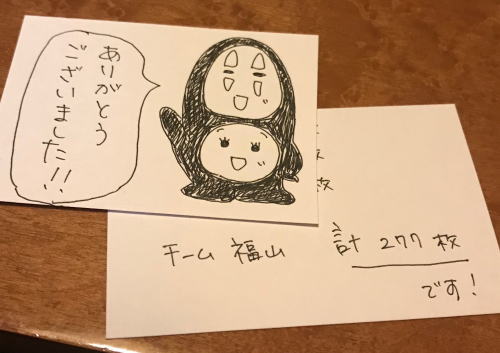 ありがとう
ございました!!
枚
枚
チーム 福山
計 277 枚
です!